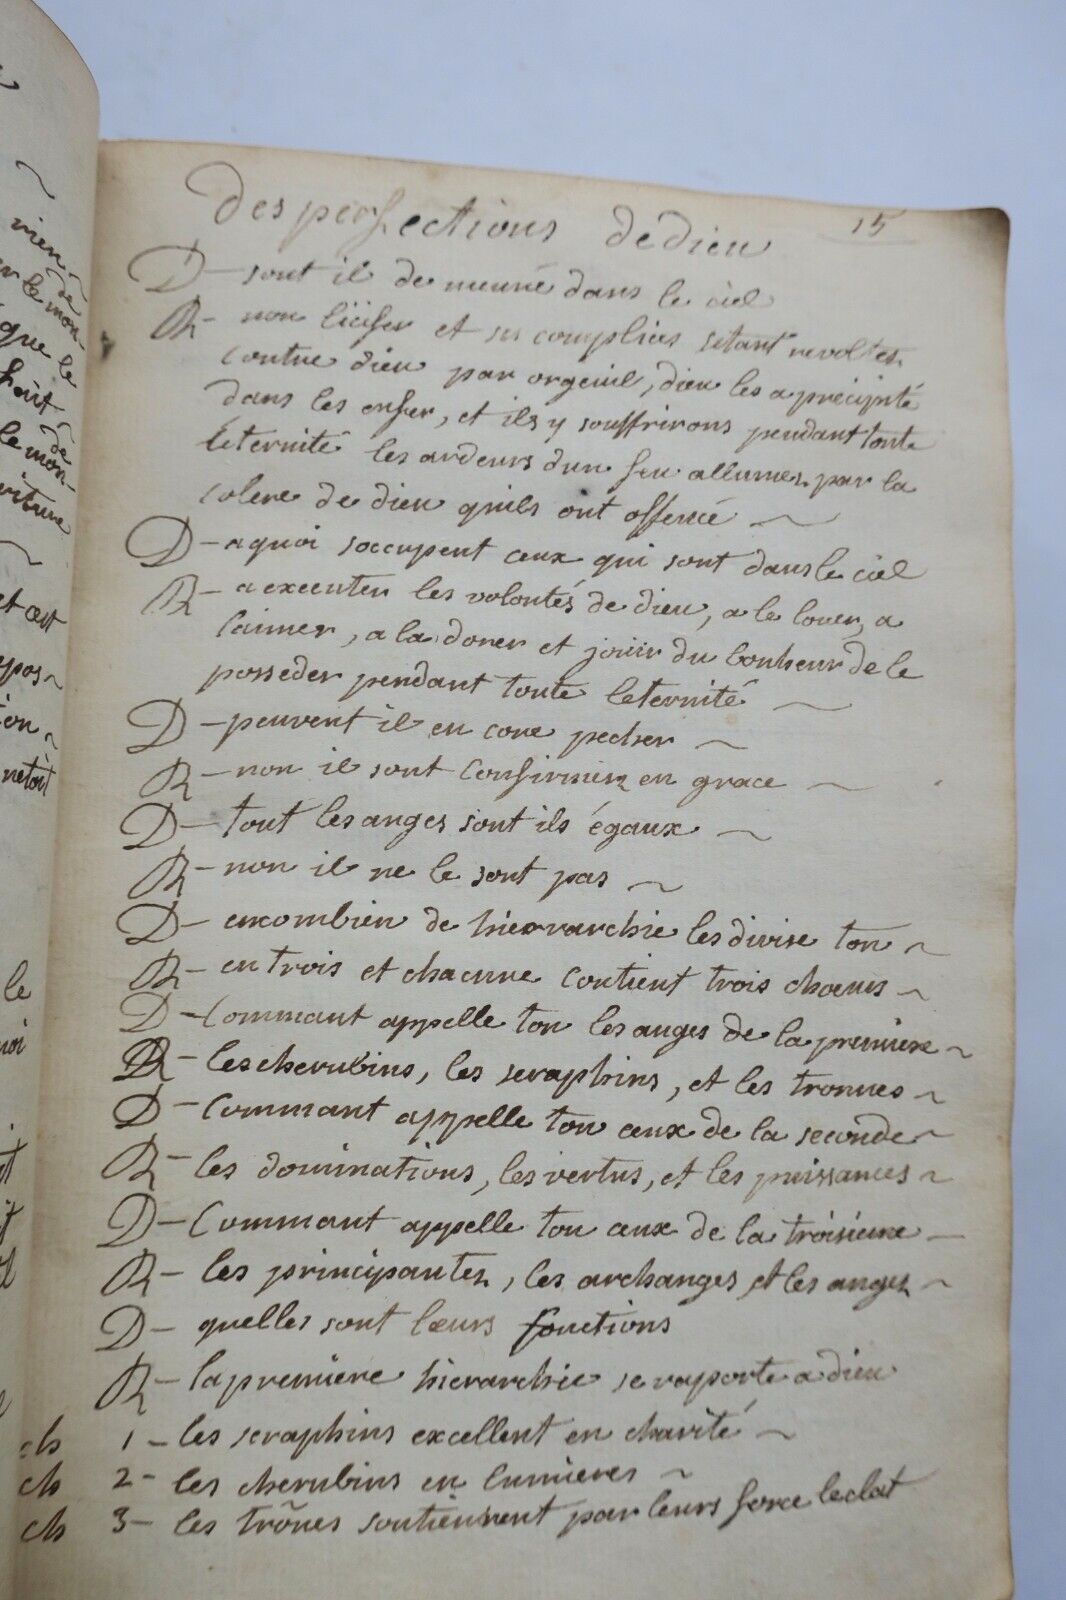 15
des perfections de dieu
D - sont il de meuré dans le ciel
R - non lucifer et ses complices setant revoltes
contre dieu par orgeuil, dieu les a précipité
dans les enfer, et ils y souffrirons pendant toute
leternité les ardeurs dun feu allumez par la
colere de dieu quils ont offencé ~
D - a quoi soccupent ceux qui sont dans le ciel
R - a executer les volontés de dieu, a le louer, a
laimer, a la dorer et joüir du bonheur de le
posseder pendant toute leternité ~
D - peuvent il en core pecher ~
R - non il sont confirmez en grace ~
D - tout les anges sont ils égaux ~
R - non il ne le sont pas ~
D - encombien de hierrarchie les divise ton ~
R - en trois et chacune contient trois chœurs ~
D - Commant appelle ton les anges de la premiere ~
R - les cherubins, les seraphins, et les tronnes ~
D - Commant appelle ton ceux de la seconde ~
R - les dominations, les vertus, et les puissances ~
D - Commant appelle ton ceux de la troisieme -
R - les principautez, les archanges et les anges ~
D - quelles sont lœurs fonctions
R - la premiere hierarchie se raporte a dieu
1 - les seraphins excellent en charité ~
ch 2 - les cherubins en lumieres ~
ch 3 - les trônes soutiennent par leurs force leclat